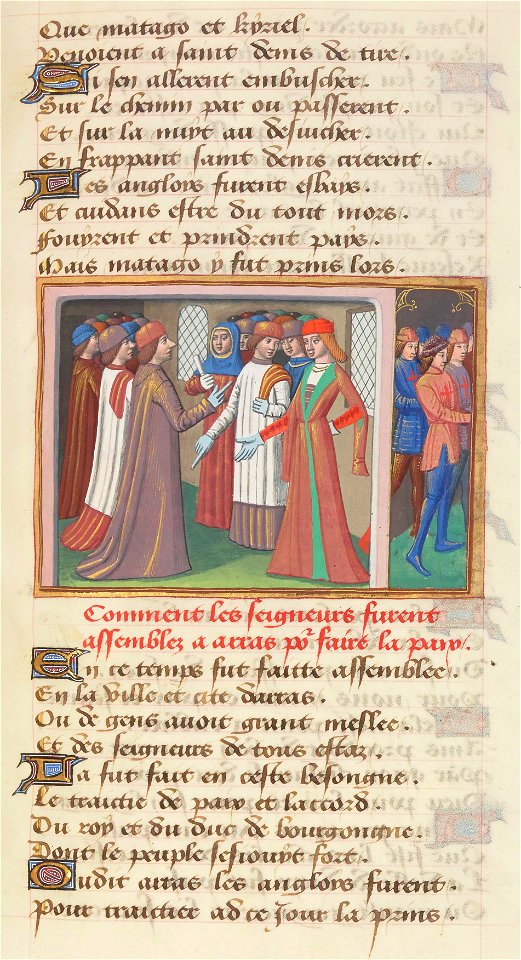 Que matago et kyriel.
Venoient a saint denis de tire
Si sen allerent embuscher.
Sur le chemin par ou passerent.
Et sur la nuyt au desiucher.
En frappant saint denis crierent.
Les angloys furent esbays.
Et cuidans estre du tout mors.
Fouyrent et prindrent pays.
Mais matago y fut prins lors.
Comment les seigneurs furent
assemblez a arras por faire la paix.
En ce temps fut faitte assemblee.
En la ville et cite darras.
Ou de gens auoit grant meslee.
Et des seigneurs de tous estaz.
La fut fait en ceste besongne.
Le traictie de paix et laccord
Du roy et du duc de bourgongne.
Dont le peuple sesiouyt fort.
Oudit arras les angloys furent.
Pour traictier ad ce Jour la prins.